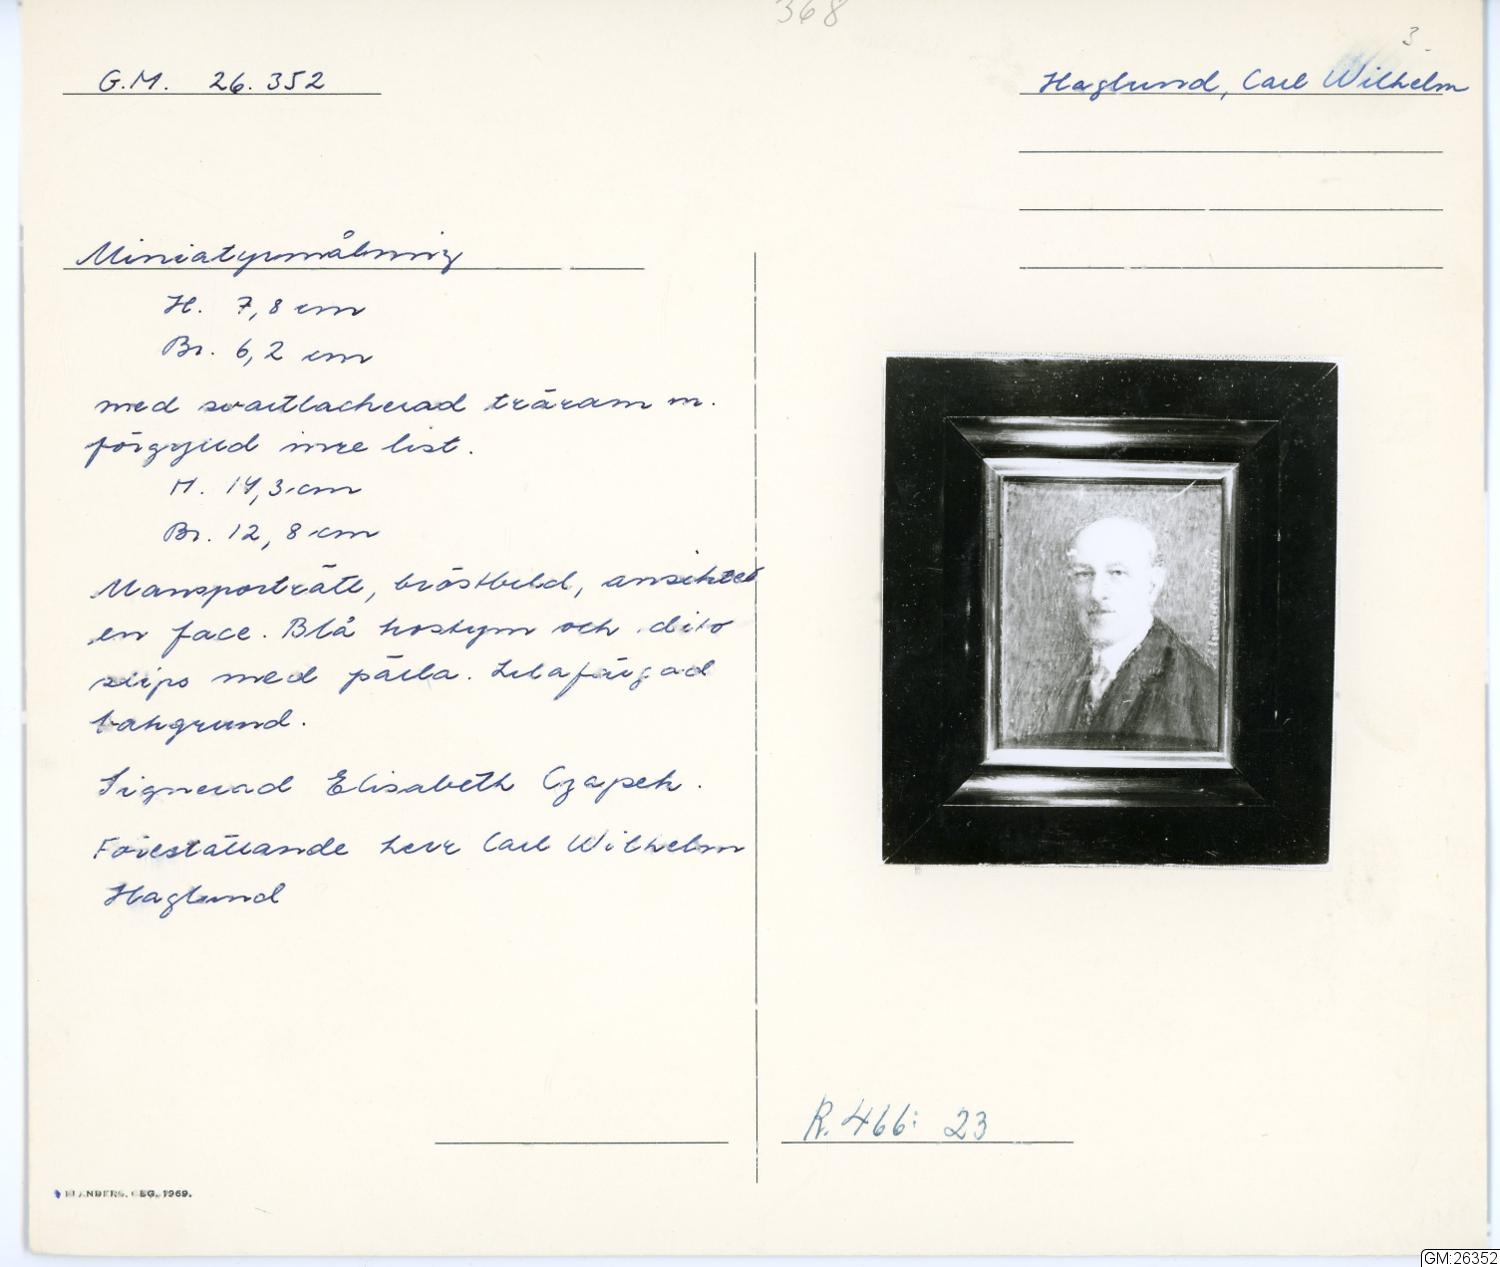 368
3.
G.M. 26.352
Haglund, Carl Wilhelm
Miniatyrmålning
H. 7,8 cm
Br. 6,2 cm
med svartlackerad träram m.
förgylld inre list.
H. 14,3 cm
Br. 12,8 cm
Mansporträtt, bröstbild, ansiktet
en face. Blå kostym och dito
slips med pärla. Lilafärgad
bakgrund.
Signerad Elisabeth Czapek.
Föreställande herr Carl Wilhelm
Haglund
R. 466: 23
GBG. 1969.
GM:26352